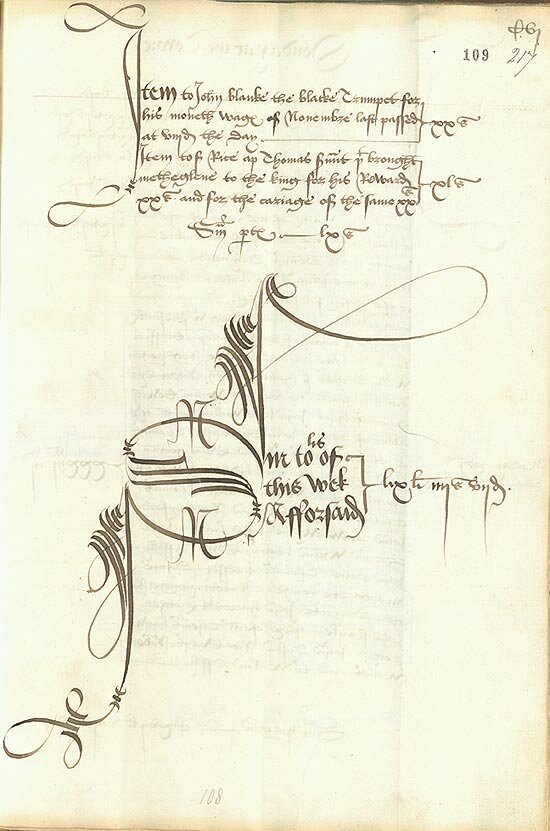 109
217
Item to John blanke the blacke Trumpet for
his moneth wage of Nouembre last passed
at viijd the day xxs
Item to Rice ap Thomas brought
metheglene to the king for his Reward
xxs and for the cariage of the same xxs xls
lxs
Sm tolis of
this wek
Afforsaid
108